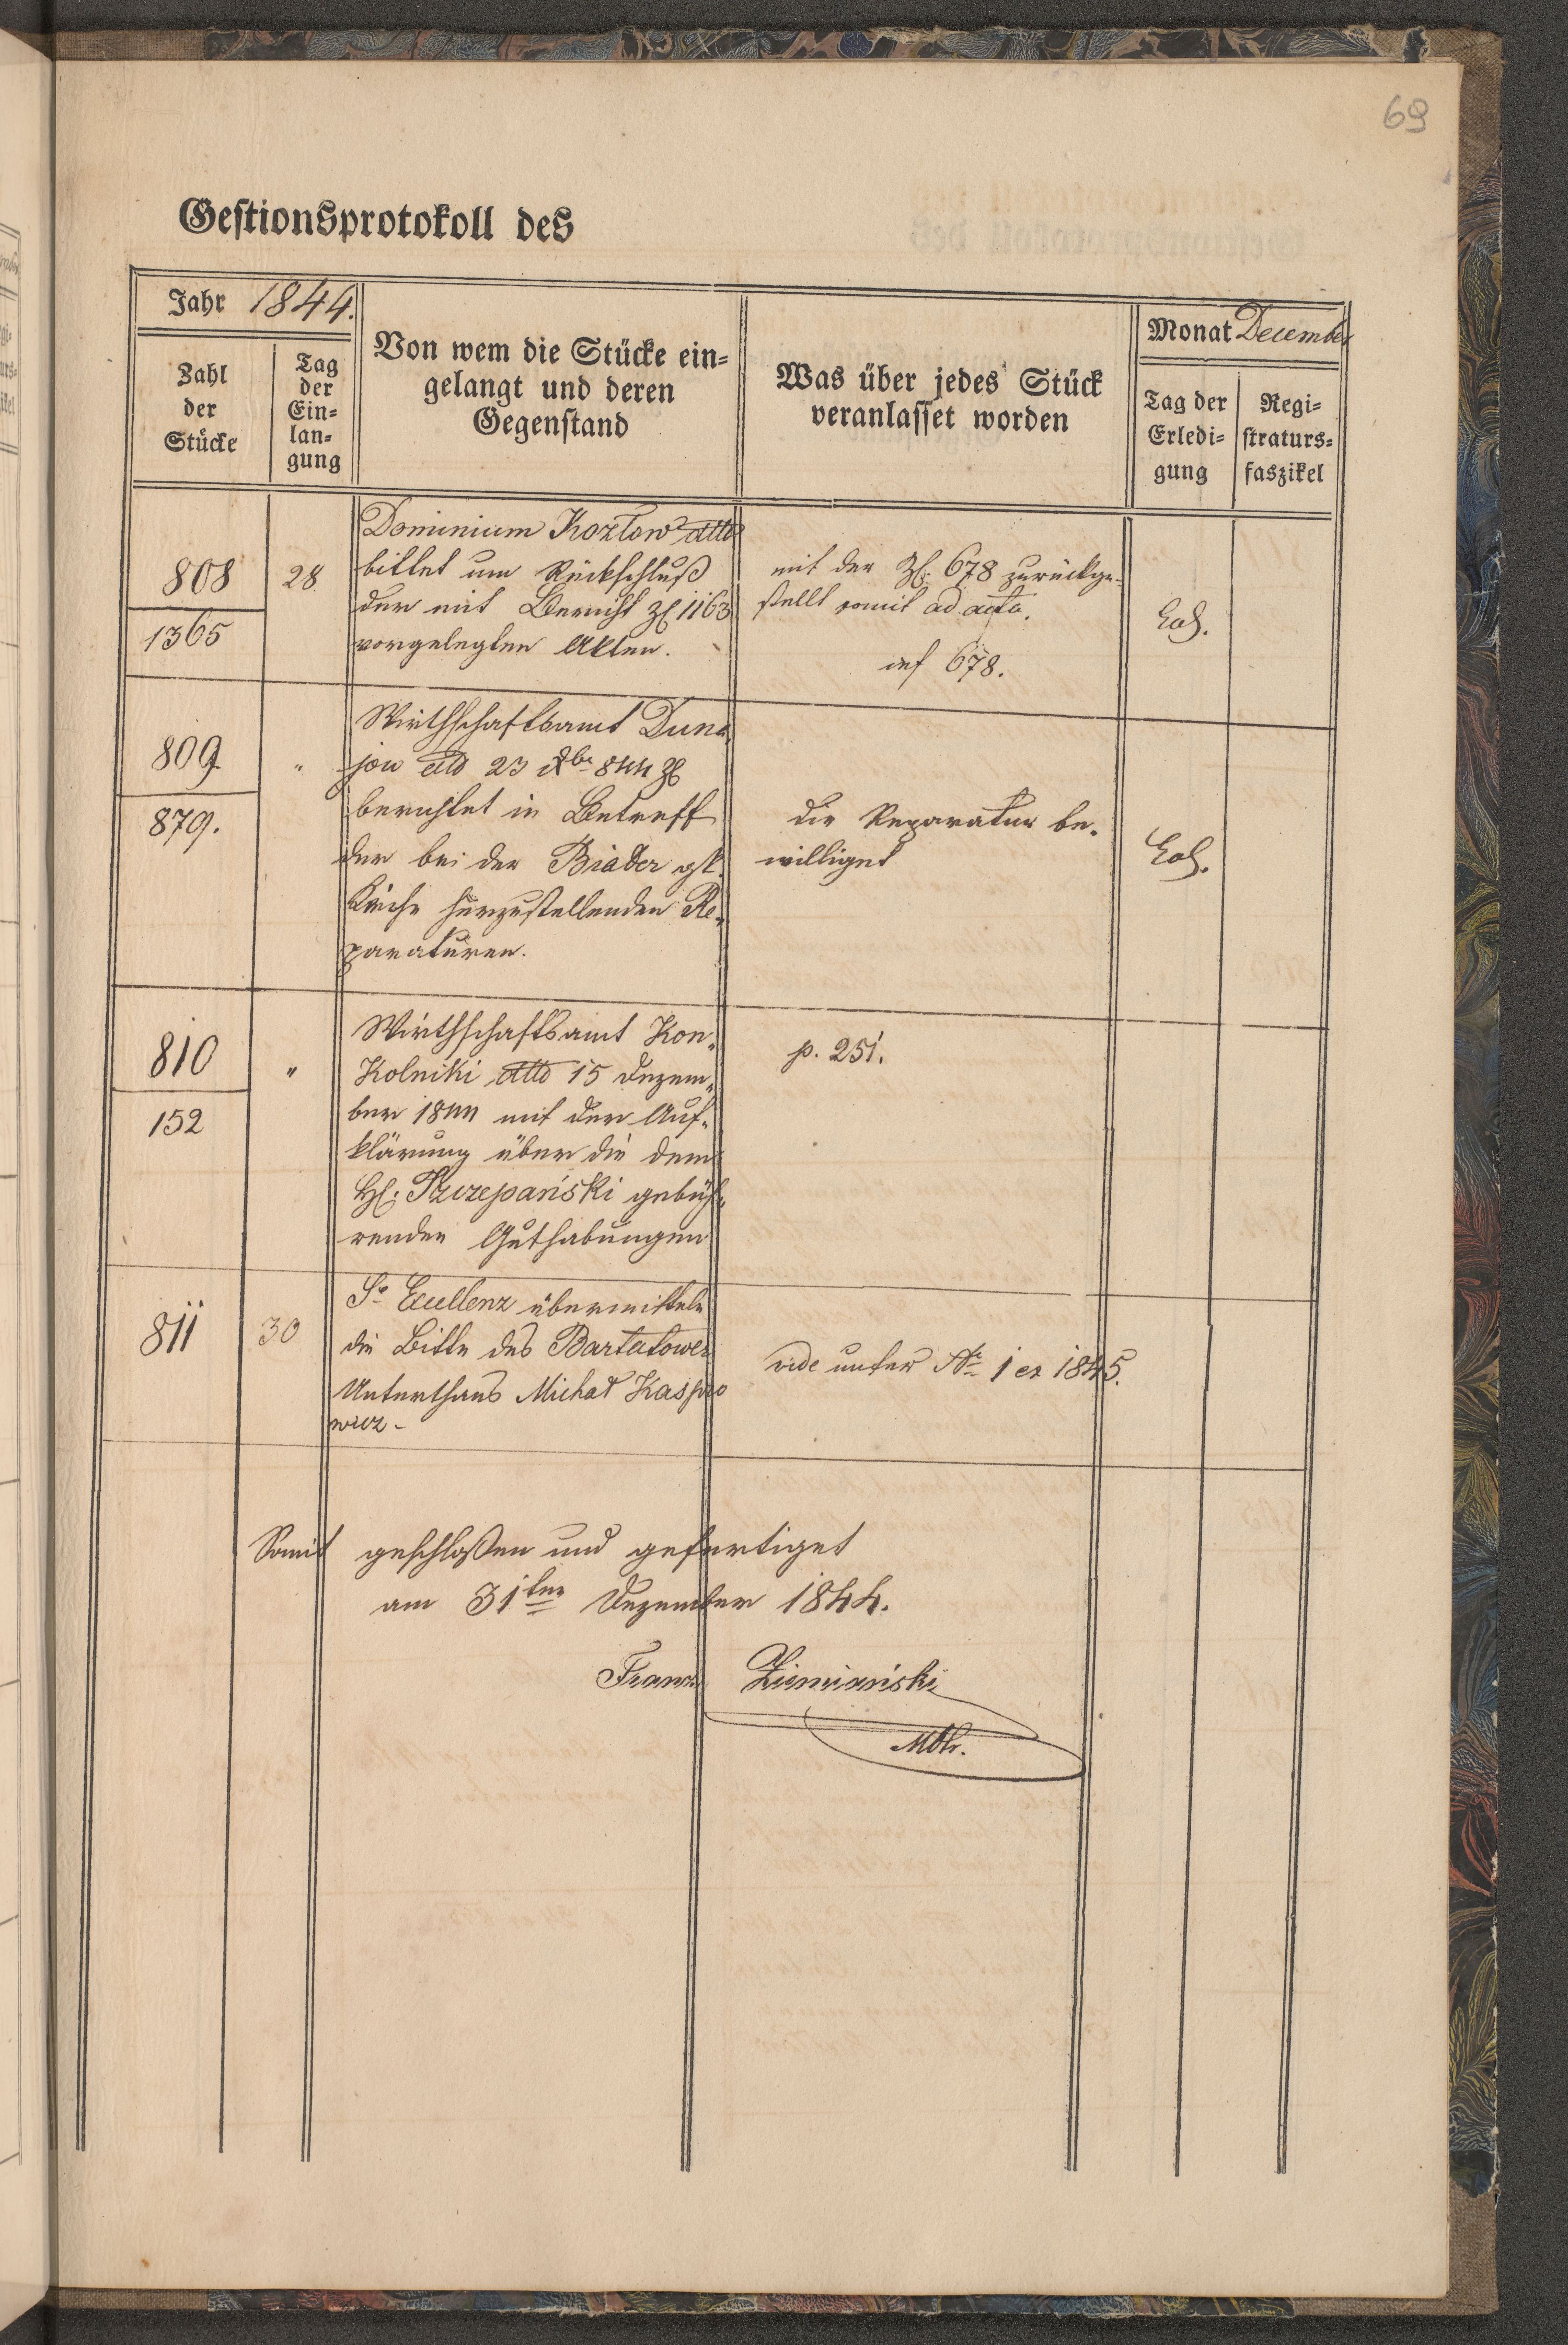 69
Gestionsprotokoll des
Jahr 1844.
Monat December
Zahl
der
Stücke
Tag
der
Ein-
lan-
gung
Von wem die Stücke ein-
gelangt und deren
Gegenstand
Was über jedes Stück
veranlasset worden
Tag der
Erledi-
gung
Regi-
straturs-
faszikel
808
1365
28
Dominium Kozłow dtto
bittet um Rückschluß
der mit Bericht Zl 1163
vorgelegten Akten.
mit der Zl. 678 zurückge-
stellt somit ad acta.
678.
809
879.
"
Wirthschaftsamt Duna-
jow dtd 23 Xbr 844 Zl
berichtet in Betreff
der bei der
Kirche herzustellenden Re-
paraturen.
die Reparatur be-
williget
810
152
"
Wirthschaftsamt Kon-
Kolniki dtto 15 Dezem-
ber 1844 mit der Auf-
klärung über die dem
H. Szczepański gebüh-
renden Guthabungen
p. 251.
811
30
Se Excellenz übermitteln
die Bitte des Bartatower
Unterthans Michał Kaspro
wicz -
vide unter Nr 1 ex 1845.
Somit geschloßen und gefertiget
am 31ten Dezember 1844.
Franz Ziemiański